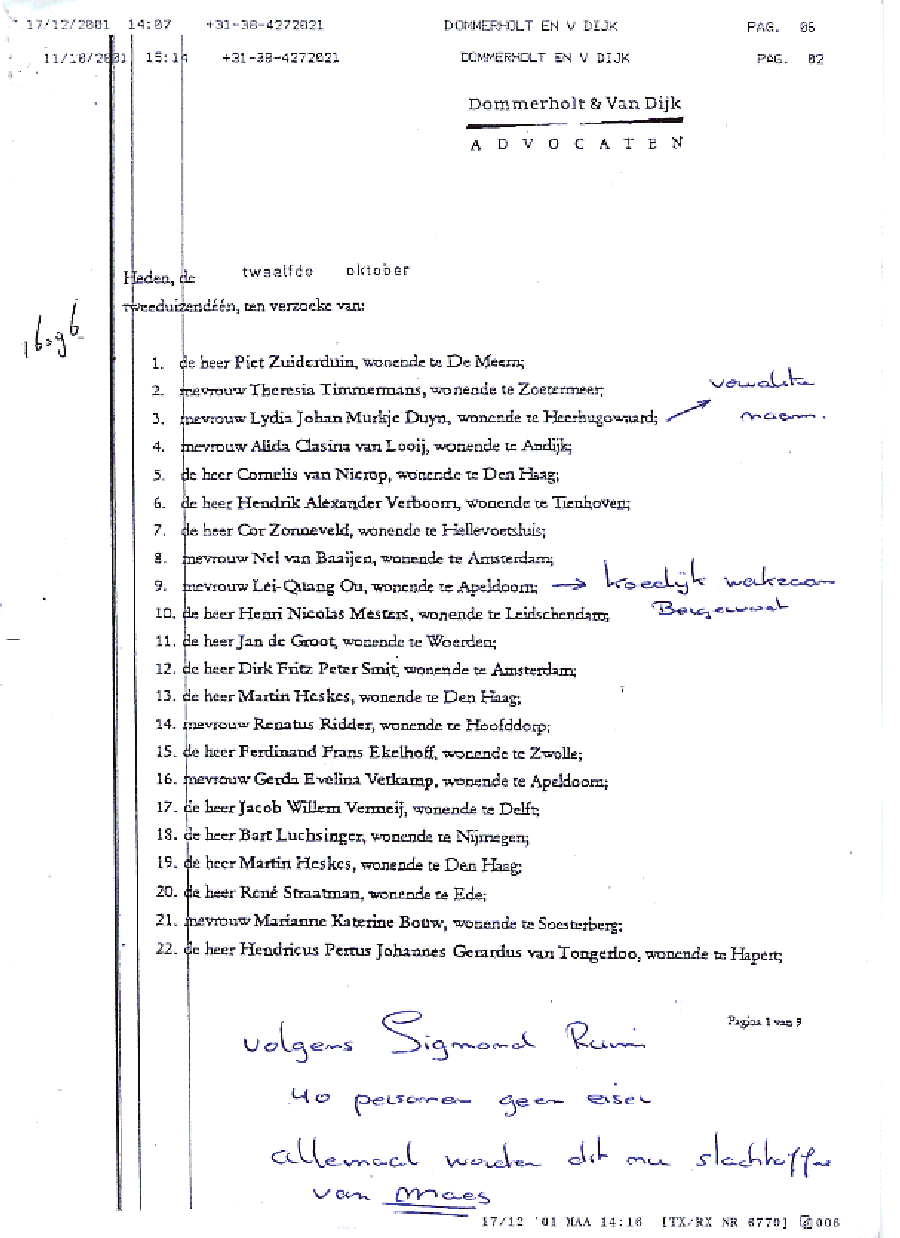 17/12/2001 14:07 +31-38-4272021 DOMMERHOLT EN V DIJK PAG. 06
11/10/2001 15:14 +31-38-4272021 DOMMERHOLT EN V DIJK PAG. 02
Dommerholt & Van Dijk
ADVOCATEN
Heden, de twaalfde oktober
tweeduizendéén, ten verzoeke van:
1. de heer Piet Zuiderduin, wonende te De Meern;
2. mevrouw Theresia Timmermans, wonende te Zoetermeer;
3. mevrouw Lydia Johan Murkje Duyn, wonende te Heerhugowaard;
naam.
4. mevrouw Alida Clasina van Looij, wonende te Andijk;
5. de heer Cornelis van Nierop, wonende te Den Haag;
6. de heer Hendrik Alexander Verboom, wonende te Tienhoven;
7. de heer Cor Zonneveld, wonende te Hellevoetsluis;
8. mevrouw Nel van Baaijen, wonende te Amsterdam;
9. mevrouw Lei-Quang Ou, wonende te Apeldoorn;
10. de heer Henri Nicolas Mesters, wonende te Leidschendam;
11. de heer Jan de Groot, wonende te Woerden;
12. de heer Dirk Fritz Peter Smit, wonende te Amsterdam;
13. de heer Martin Heskes, wonende te Den Haag;
14. mevrouw Renatus Ridder, wonende te Hoofddorp;
15. de heer Ferdinand Frans Ekelhoff, wonende te Zwolle;
16. mevrouw Gerda Evelina Vetkamp, wonende te Apeldoorn;
17. de heer Jacob Willem Vermeij, wonende te Delft;
18. de heer Bart Luchsinger, wonende te Nijmegen;
19. de heer Martin Heskes, wonende te Den Haag;
20. de heer René Straatman, wonende te Ede;
21. mevrouw Marianne Katerine Bouw, wonende te Soesterberg;
22. de heer Hendricus Pertus Johannes Gerardus van Tongerloo, wonende te Hapert;
Pagina 1 van 9
volgens Sigmond
40 personen geen eiser
allemaal worden dit nu slachtoffer
van Maes
17/12 '01 MAA 14:16 [TX/RX NR 6770] 006